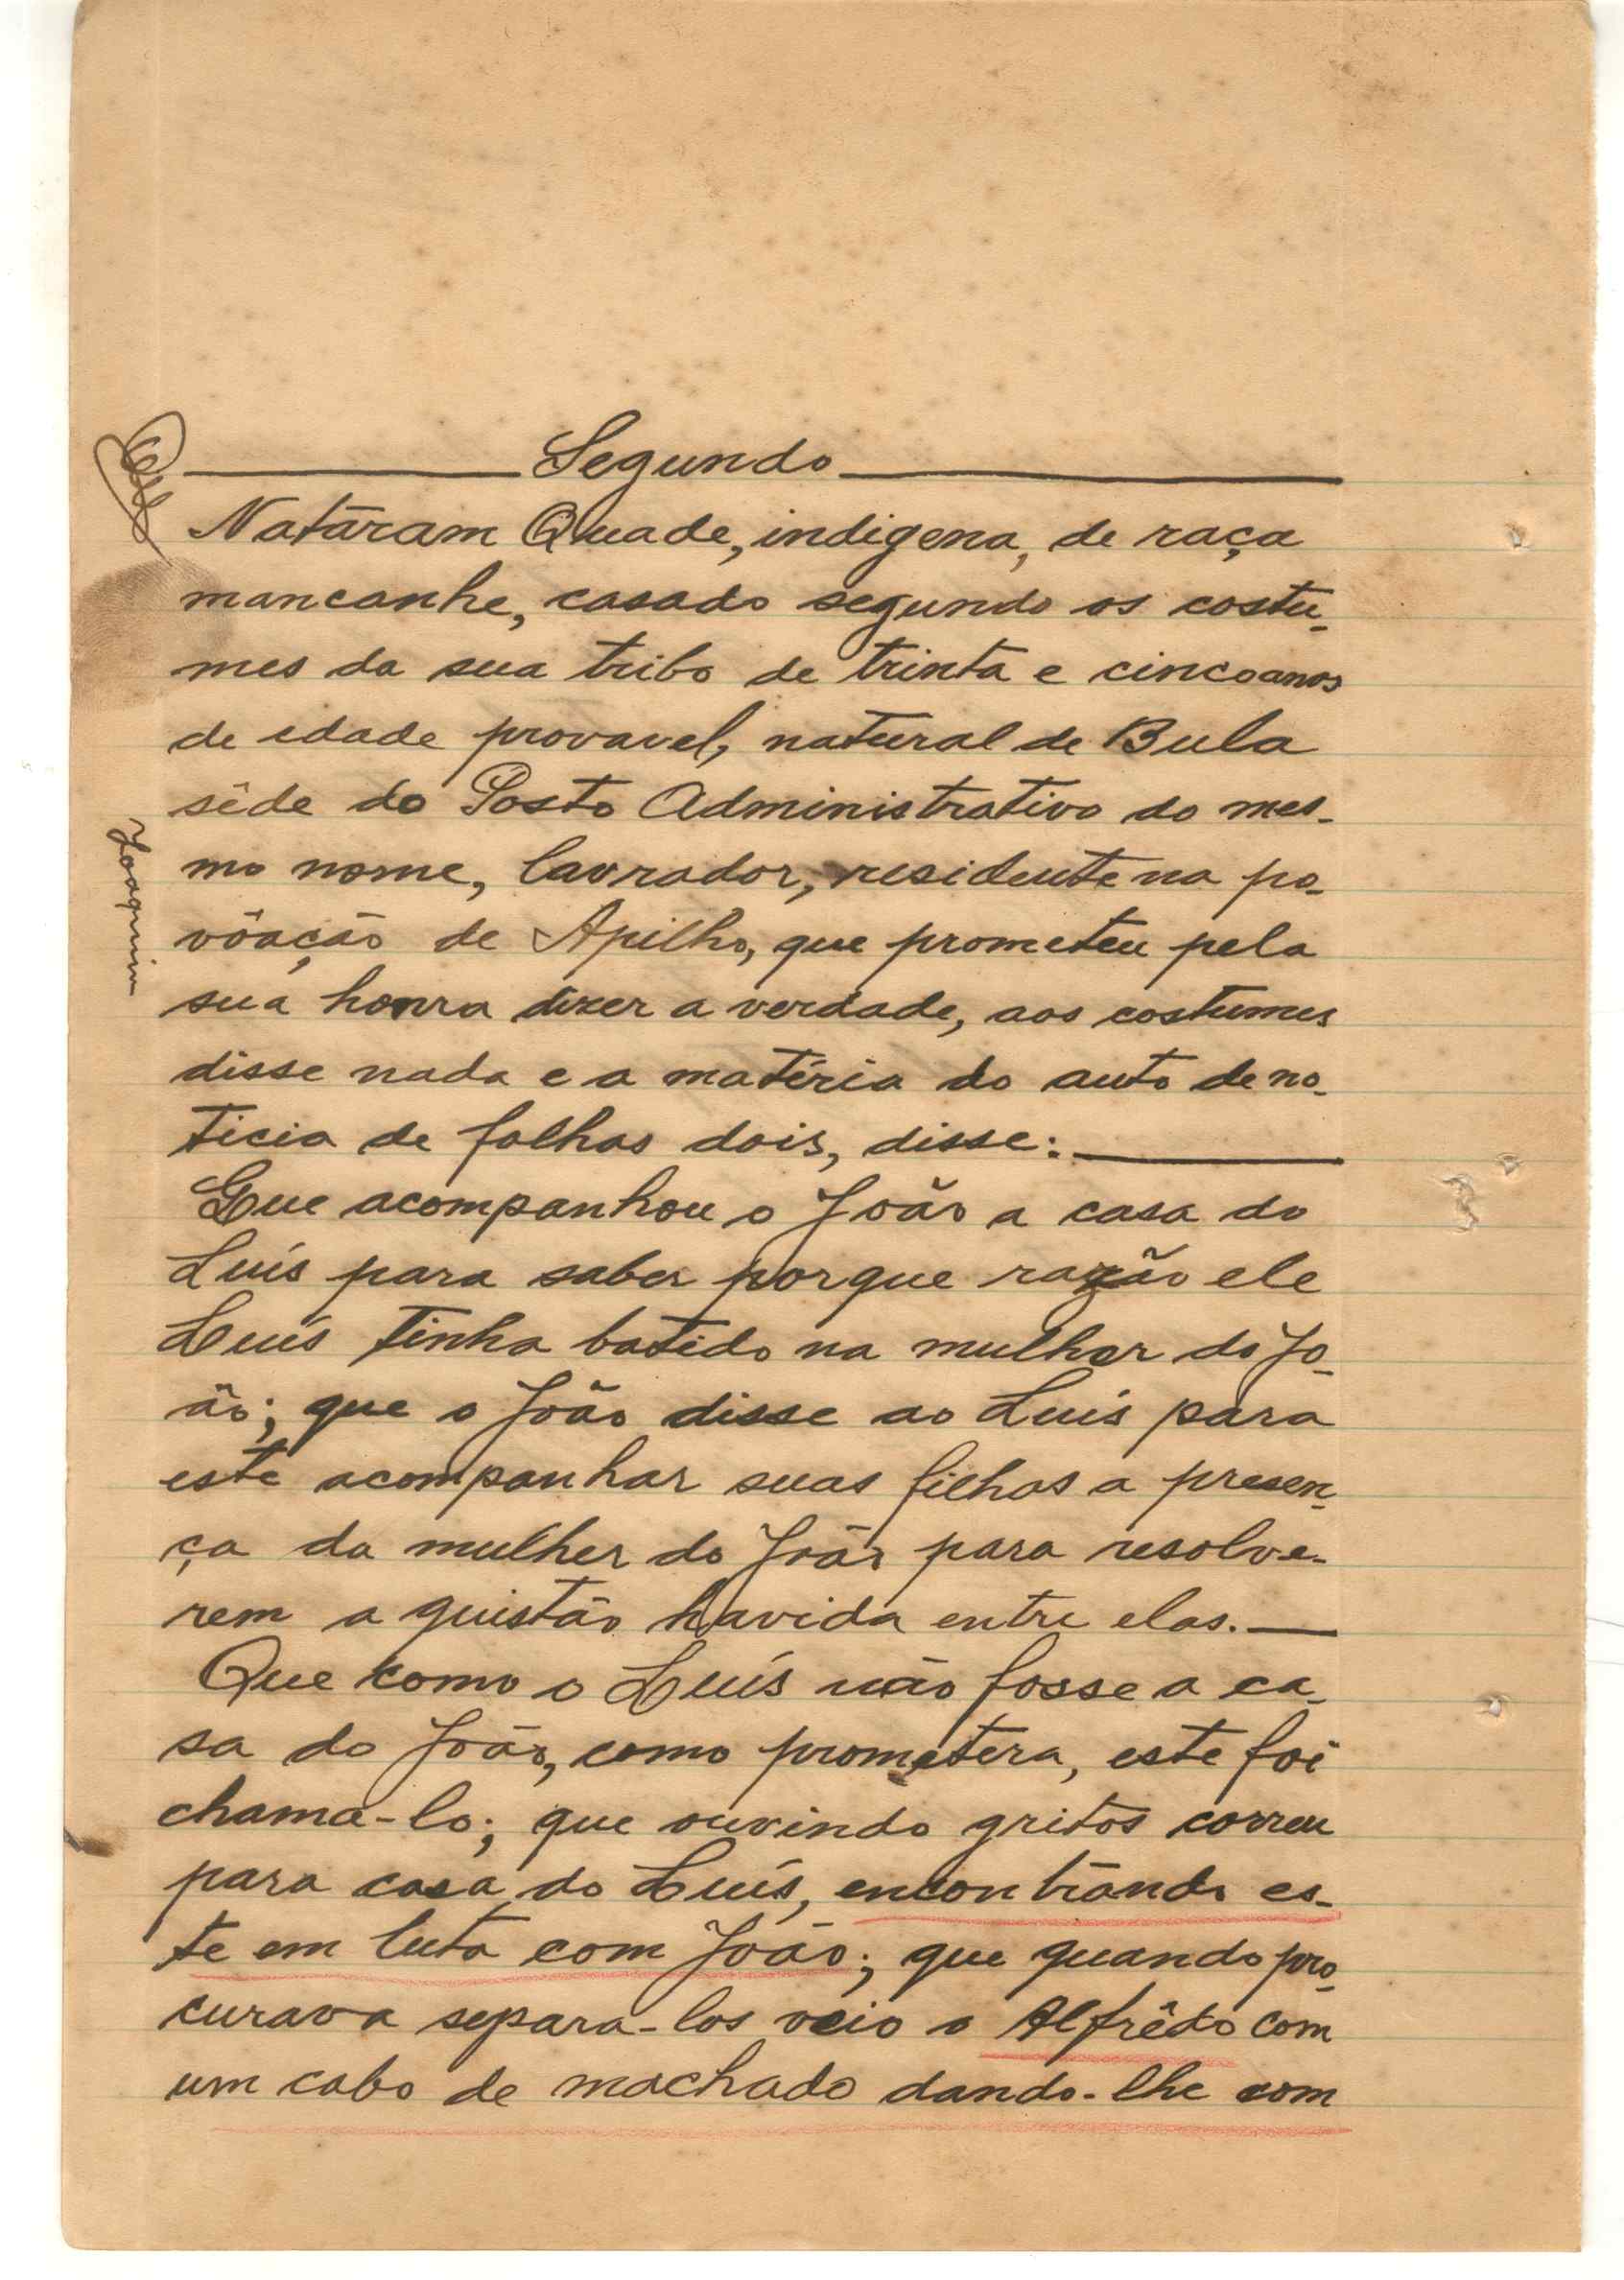 Segundo
Natáram Quade, indigena, de raça
mancanhe, casado segundo os costu-
mes da sua tribo de trinta e cinco anos
de edade provavel, natural de Bula
séde do Posto Administrativo do mes-
mo nome, lavrador, residente na po-
vôação de Apilho, que prometeu pela
sua honra dizer a verdade, aos costumes
disse nada e a matéria do auto de no-
ticia de folhas dois, disse:
Que acompanhou o João a casa do
Luís para saber porque razão ele
Luís tinha batido na mulher do Jo-
ão; que o João disse ao Luís para
este acompanhar suas filhas a presen-
ça da mulher do João para resolve-
rem a quistão havida entre elas.
Que como o Luís não fosse a ca-
sa do João, como prometera, este foi
chama-lo; que ouvindo gritos correu
para casa do Luís, encontrando es-
te em luta com João; que quando pro-
curava separa-los veio o Alfrêdo com
um cabo de machado dando-lhe com
Joaquim